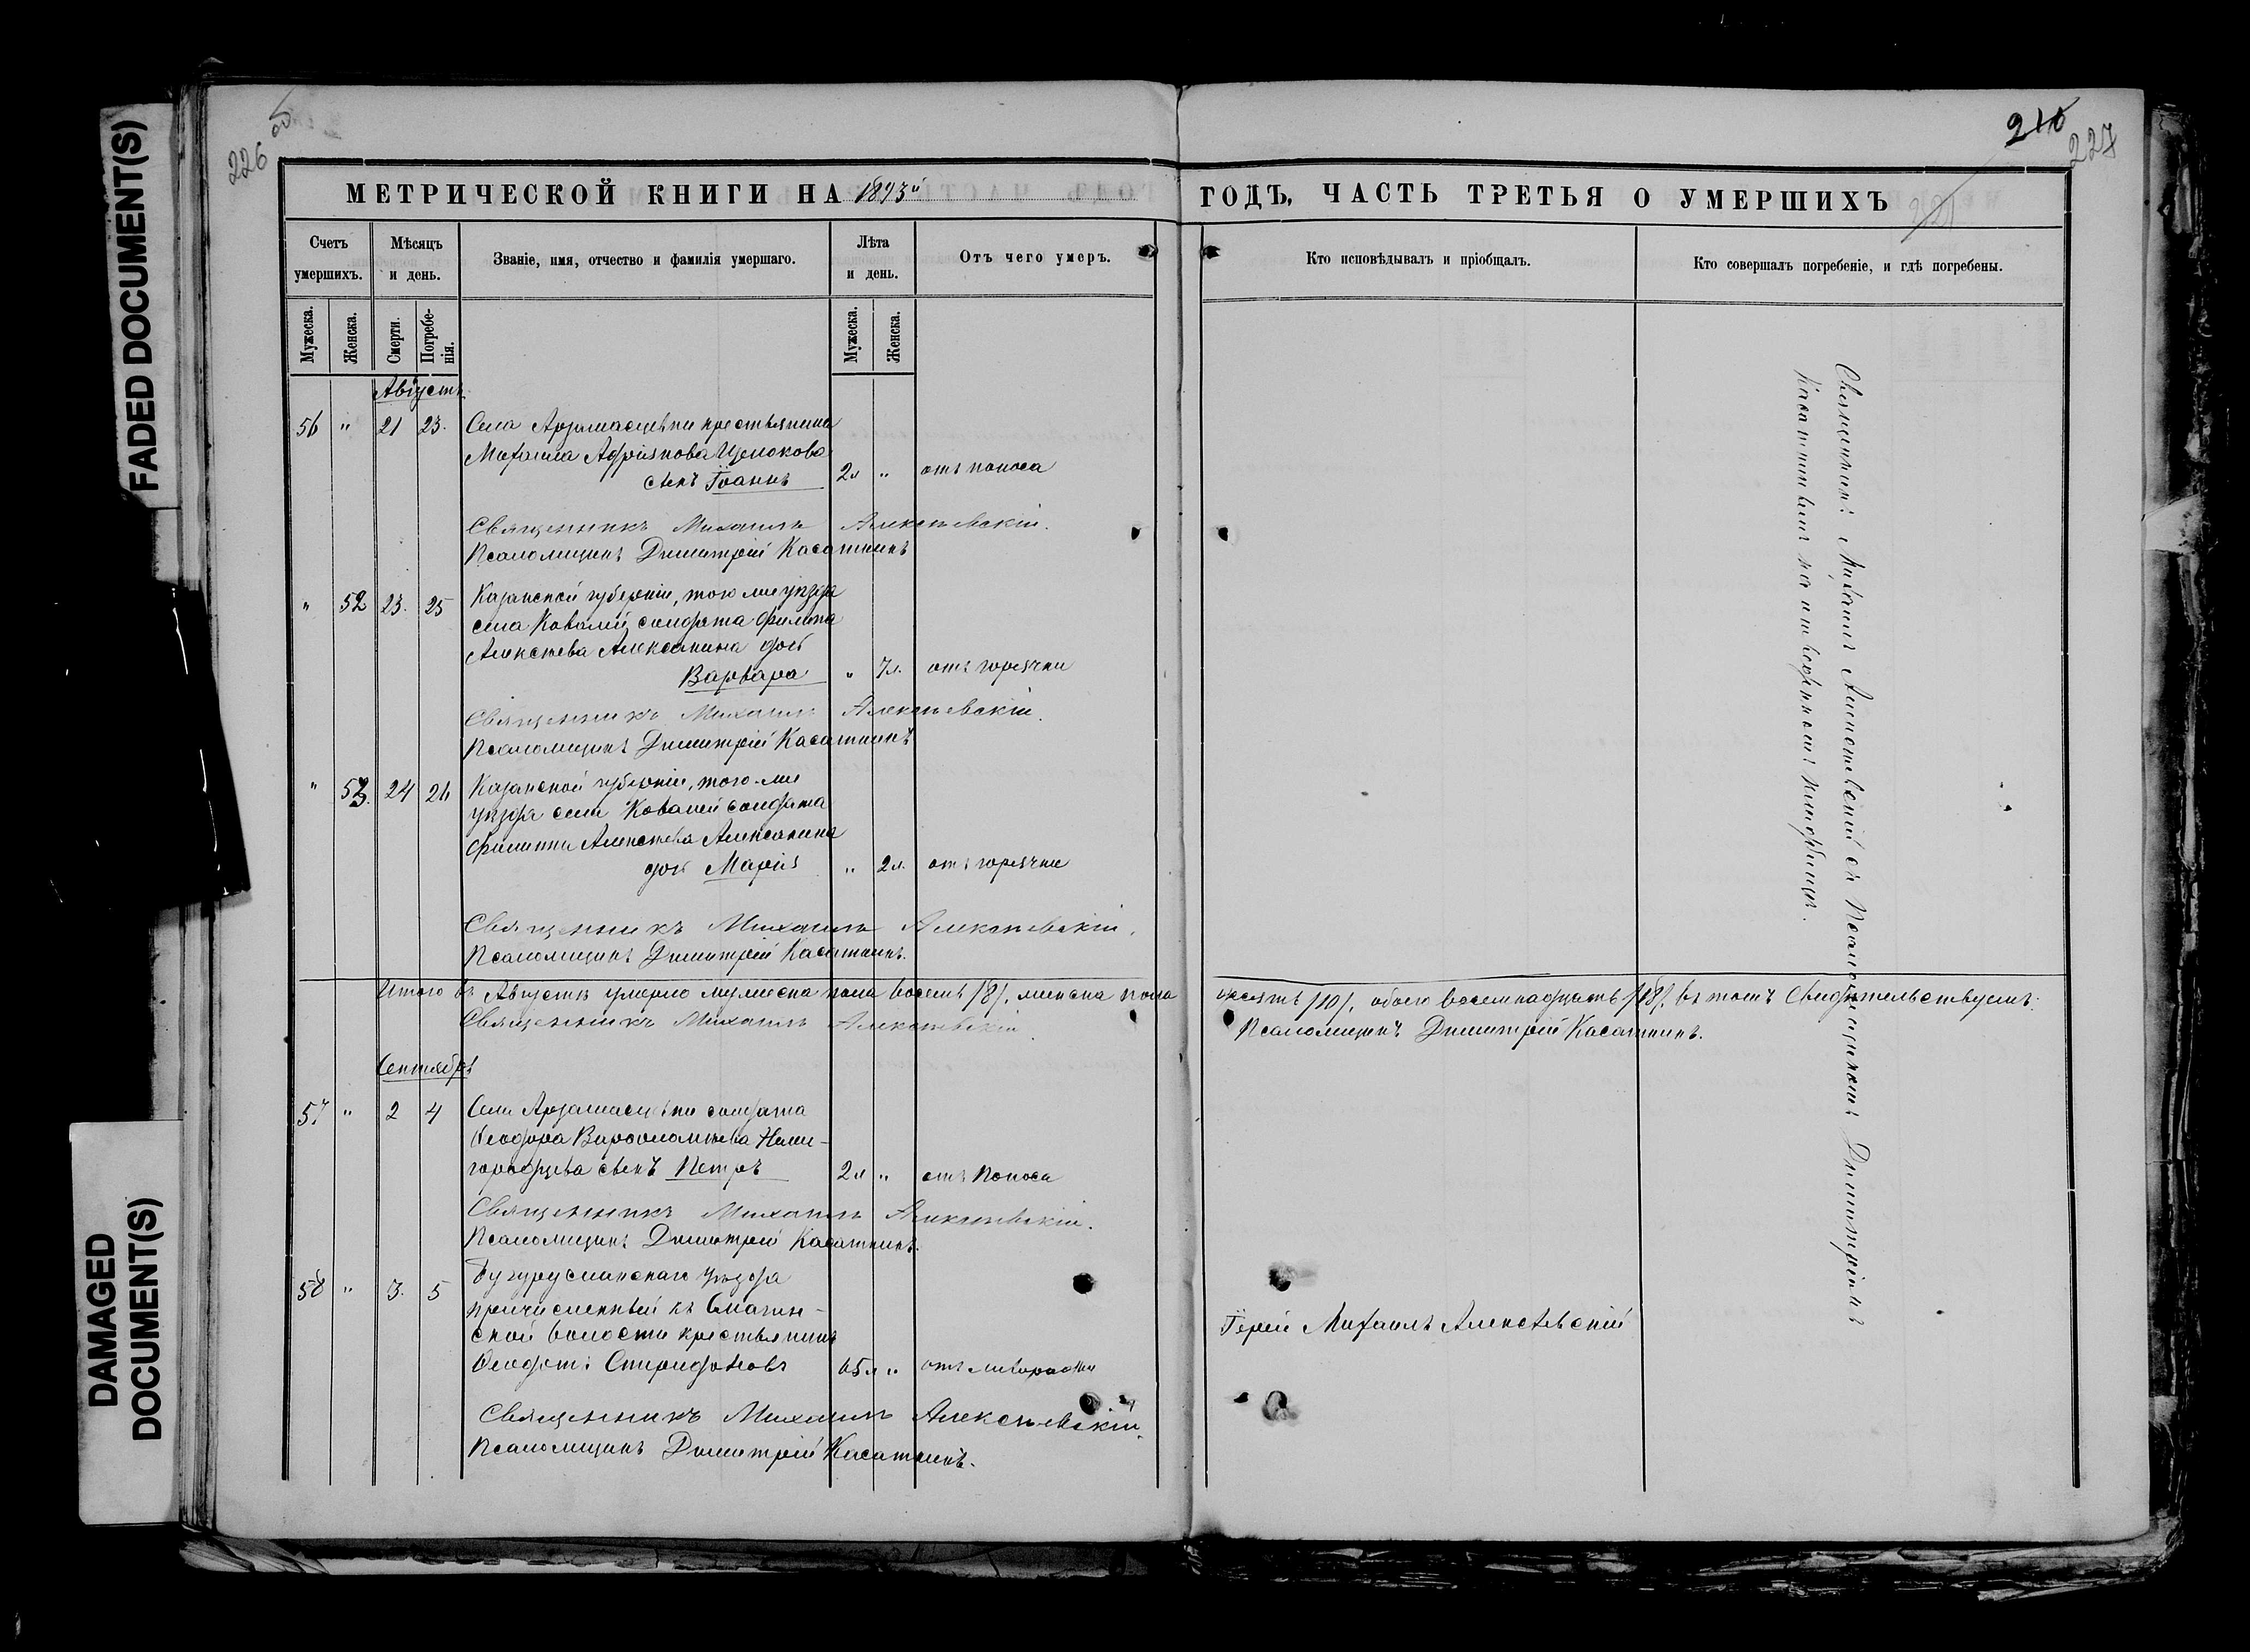 FADED DOCUMENT(S)
DAMAGED
DOCUMENT(S)
226
210
227
МЕТРИЧЕСКОЙ КНИГИ НА 1893й ГОДЪ, ЧАСТЬ ТРЕТЬЯ О УМЕРШИХЪ
Счетъ умершихъ.
Мѣсяцъ и день.
Званіе, имя, отчество и фамилія умершаго.
Лѣта и день.
Отъ чего умеръ.
Кто исповѣдывалъ и пріобщалъ.
Кто совершалъ погребеніе, и гдѣ погребены.
Мужеска.
Женска.
Смерти.
Погребенія.
Мужеска.
Женска.
Августъ
56 " 21 23. Села Арзамасцевки крестьянина
Михаила Адріянова
сынъ Іоаннъ 2л " отъ поноса
Священникъ Михаилъ Алексѣевскій.
Псаломщикъ Димитрій Касаткинъ
" 52 23. 25 Казанской губерніи, того же уѣзда
села Ковалей солдата Филипа
Алексѣева Алексанина дочь
Варвара " 7л. отъ горячки
Священникъ Михаилъ Алексѣевскій.
Псаломщикъ Димитрій Касаткинъ
" 53. 24 26 Казанской губерніи, того-же
уѣзда села Ковалей солдата
Филиппа Алексѣева Алексанина
дочь Марія " 2л. отъ горячки
Священникъ Михаилъ Алексѣевскій.
Псаломщикъ Димитрій Касаткинъ.
Итого въ Августѣ умерло мужеска пола восемь /8/, женска пола десять /10/, обоего восемнадцать /18/, въ томъ свидѣтельствуемъ:
Священникъ Михаилъ Алексѣевскій Псаломщикъ Димитрій Касаткинъ.
Сентябрь
57 " 2 4 Села Арзамасцевки солдата
Ѳеодора Варѳоломѣева Ниже-
городцева сынъ Петръ 2л " отъ поноса
Священникъ Михаилъ Алексѣевскій.
Псаломщикъ Димитрій Касаткинъ.
58 " 3. 5 Бугурусланскаго уѣзда
причисленный къ
ской волости крестьянинъ
Ѳеодотъ Спиридоновъ 65л " отъ лихорадки
Іерей Михаилъ Алексѣевскій
Священникъ Михаилъ Алексѣевскій.
Псаломщикъ Димитрій Касаткинъ.
Священникъ Михаилъ Алексѣевскій съ Псаломщикомъ Димитріемъ
Касаткинымъ на отведенномъ кладбищѣ.